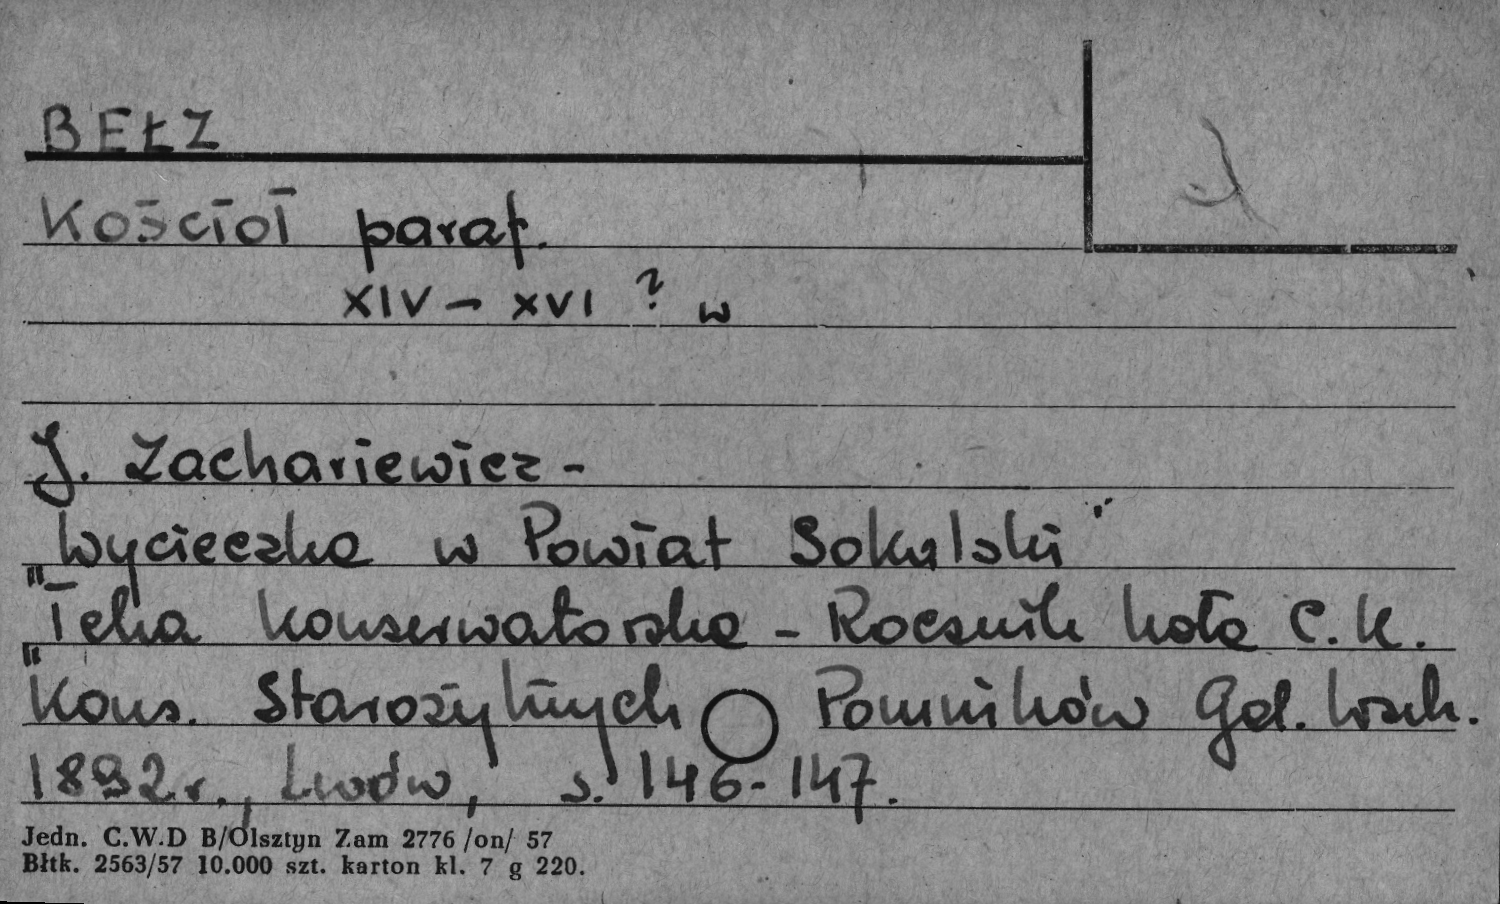 BEŁZ
Kościół paraf.
XIV – XVI ? w
J. Zachariewicz -
Wycieczka w Powiat Sokalski"
"Teka Konserwatorska - Rocznik koła C.K.
"Kons. Starożytnych Pomników Gal. Wsch.
1892 r., Lwów, s. 146-147.
Jedn. C.W.D B/Olsztyn Zam 2776 /on/ 57
Błtk. 2563/57 10.000 szt. karton kl. 7 g 220.